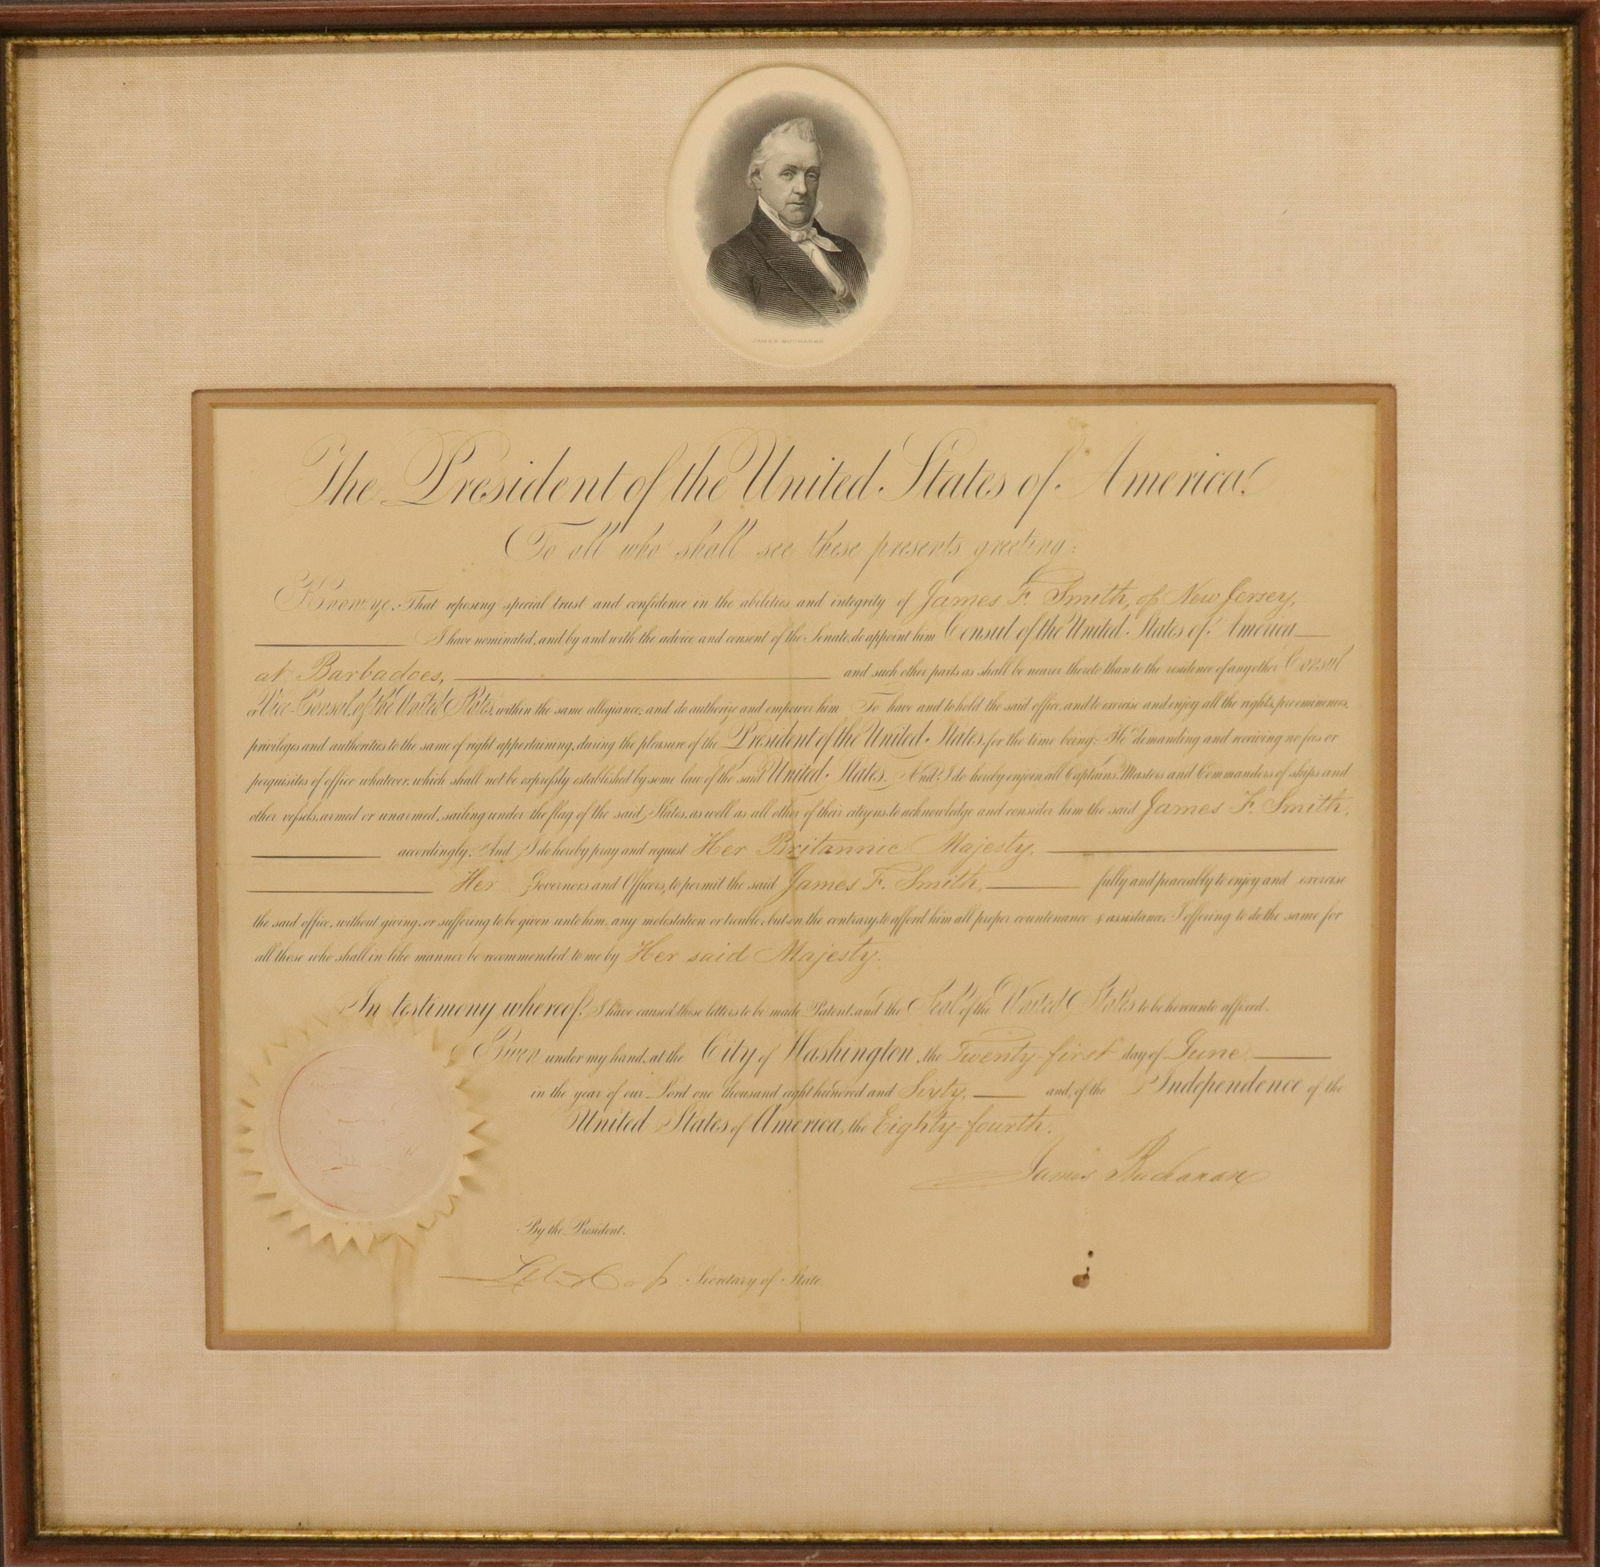 JAMES BUCHANAN
The President of the United States of America,
To all who shall see these presents greeting:
Know ye, That reposing special trust and confidence in the abilities and integrity of James F. Smith, of New Jersey,
I have nominated, and by and with the advice and consent of the Senate, do appoint him Consul of the United States of America
at Barbadoes, and such other parts as shall be nearer thereto than to the residence of any other Consul
or Vice-Consul of the United States, within the same allegiance; and do authorize and empower him To have and to hold the said office, and to exercise and enjoy all the rights, preeminences,
privileges and authorities to the same of right appertaining, during the pleasure of the President of the United States, for the time being; He demanding and receiving no fees or
perquisites of office whatever, which shall not be expressly established by some law of the said United States. And I do hereby enjoin all Captains, Masters and Commanders of ships and
other vessels, armed or unarmed, sailing under the flag of the said States, as well as all other of their citizens, to acknowledge and consider him the said James F. Smith,
accordingly. And I do hereby pray and request Her Britannic Majesty,
Her Governors and Officers, to permit the said James F. Smith, fully and peaceably to enjoy and exercise
the said office, without giving, or suffering to be given unto him, any molestation or trouble, but on the contrary, to afford him all proper countenance & assistance; I offering to do the same for
all those who shall in like manner be recommended to me by Her said Majesty.
In testimony whereof, I have caused these letters to be made Patent, and the Seal of the United States to be hereunto affixed.
Given under my hand, at the City of Washington, the Twenty-first day of June
in the year of our Lord one thousand eight hundred and Sixty, and of the Independence of the
United States of America, the Eighty-fourth.
James Buchanan
By the President.
Lewis Cass Secretary of State.